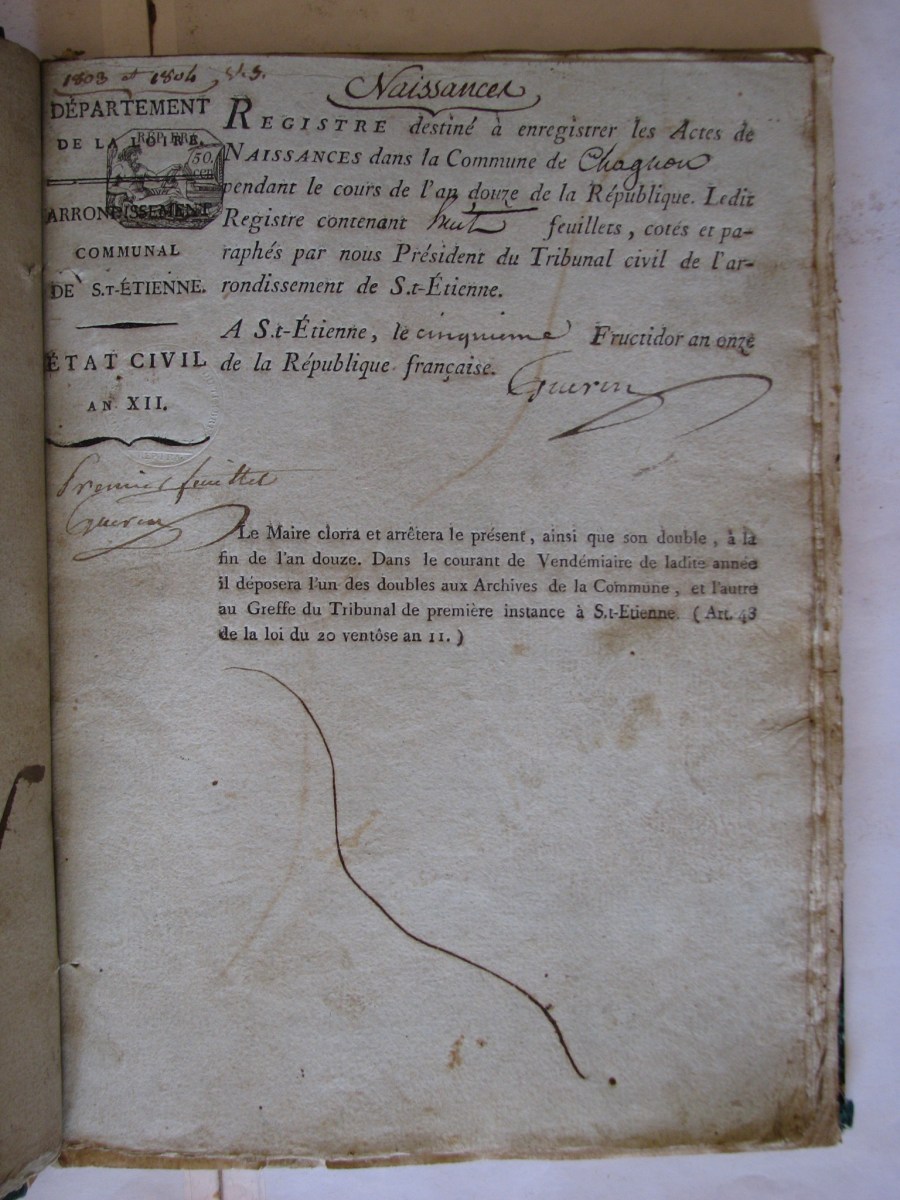 1803 et 1804
Naissances
DÉPARTEMENT
DE LA LOIRE.
RÉP. FRA.
50.
CEN
ARRONDISSEMENT
COMMUNAL
DE S.T-ÉTIENNE.
ÉTAT CIVIL
AN XII.
REGISTRE destiné à enregistrer les Actes de
NAISSANCES dans la Commune de Chagnon
pendant le cours de l'an douze de la République. Ledit
Registre contenant huit feuillets, cotés et pa-
raphés par nous Président du Tribunal civil de l'ar-
rondissement de S.t-Étienne.
A S.t-Étienne, le cinquieme Fructidor an onze
de la République française.
Guerin
Premier feuillet
Guerin
Le Maire clorra et arrêtera le présent, ainsi que son double, à la
fin de l'an douze. Dans le courant de Vendémiaire de ladite année
il déposera l'un des doubles aux Archives de la Commune, et l'autre
au Greffe du Tribunal de première instance à S.t-Etienne. (Art. 43
de la loi du 20 ventôse an 11.)